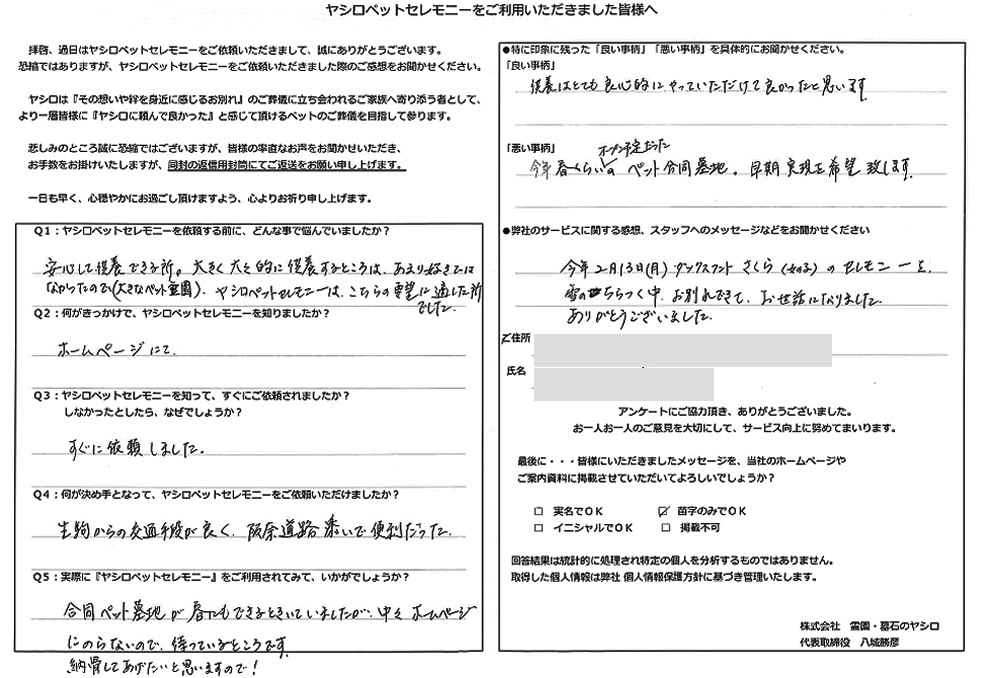 ヤシロペットセレモニーをご利用いただきました皆様へ
拝啓、過日はヤシロペットセレモニーをご依頼いただきまして、誠にありがとうございます。
恐縮ではありますが、ヤシロペットセレモニーをご依頼いただきました際のご感想をお聞かせください。
ヤシロは『その想いや絆を身近に感じるお別れ』のご葬儀に立ち会われるご家族へ寄り添う者として、
より一層皆様に『ヤシロに頼んで良かった』と感じて頂けるペットのご葬儀を目指して参ります。
悲しみのところ誠に恐縮ではございますが、皆様の率直なお声をお聞かせいただき、
お手数をお掛けいたしますが、同封の返信用封筒にてご返送をお願い申し上げます。
一日も早く、心穏やかにお過ごし頂けますよう、心よりお祈り申し上げます。
Q1：ヤシロペットセレモニーを依頼する前に、どんな事で悩んでいましたか？
安心して供養できる所。大きく大々的に供養するところは、あまり好きでは
なかったので(大きなペット霊園)、ヤシロペットセレモニーは、こちらの要望に適した所
でした。
Q2：何がきっかけで、ヤシロペットセレモニーを知りましたか？
ホームページにて.
Q3：ヤシロペットセレモニーを知って、すぐにご依頼されましたか？
しなかったとしたら、なぜでしょうか？
すぐに依頼しました.
Q4：何が決め手となって、ヤシロペットセレモニーをご依頼いただけましたか？
生駒からの交通手段が良く、阪奈道路添いで便利だった.
Q5：実際に『ヤシロペットセレモニー』をご利用されてみて、いかがでしょうか？
合同ペット墓地が春にもできるときいていましたが、中々ホームページ
にのらないので、待っているところです.
納骨してあげたいと思いますので！
●特に印象に残った「良い事柄」「悪い事柄」を具体的にお聞かせください。
「良い事柄」
供養はとても良心的にやっていただけて良かったと思います.
「悪い事柄」
オープン予定だった
今年春くらいの ペット合同墓地。早期実現を希望致します.
●弊社のサービスに関する感想、スタッフへのメッセージなどをお聞かせください
今年2月13日(月) ダックスフント さくら (女の子) の セレモニーを、
雪のちらつく中、お別れできて、お世話になりました.
ありがとうございました.
ご住所
氏名
アンケートにご協力頂き、ありがとうございました。
お一人お一人のご意見を大切にして、サービス向上に努めてまいります。
最後に・・・皆様にいただきましたメッセージを、当社のホームページや
ご案内資料に掲載させていただいてよろしいでしょうか？
□ 実名でＯＫ ☑ 苗字のみでＯＫ
□ イニシャルでＯＫ □ 掲載不可
回答結果は統計的に処理され特定の個人を分析するものではありません。
取得した個人情報は弊社 個人情報保護方針に基づき管理いたします。
株式会社 霊園・墓石のヤシロ
代表取締役 八城勝彦